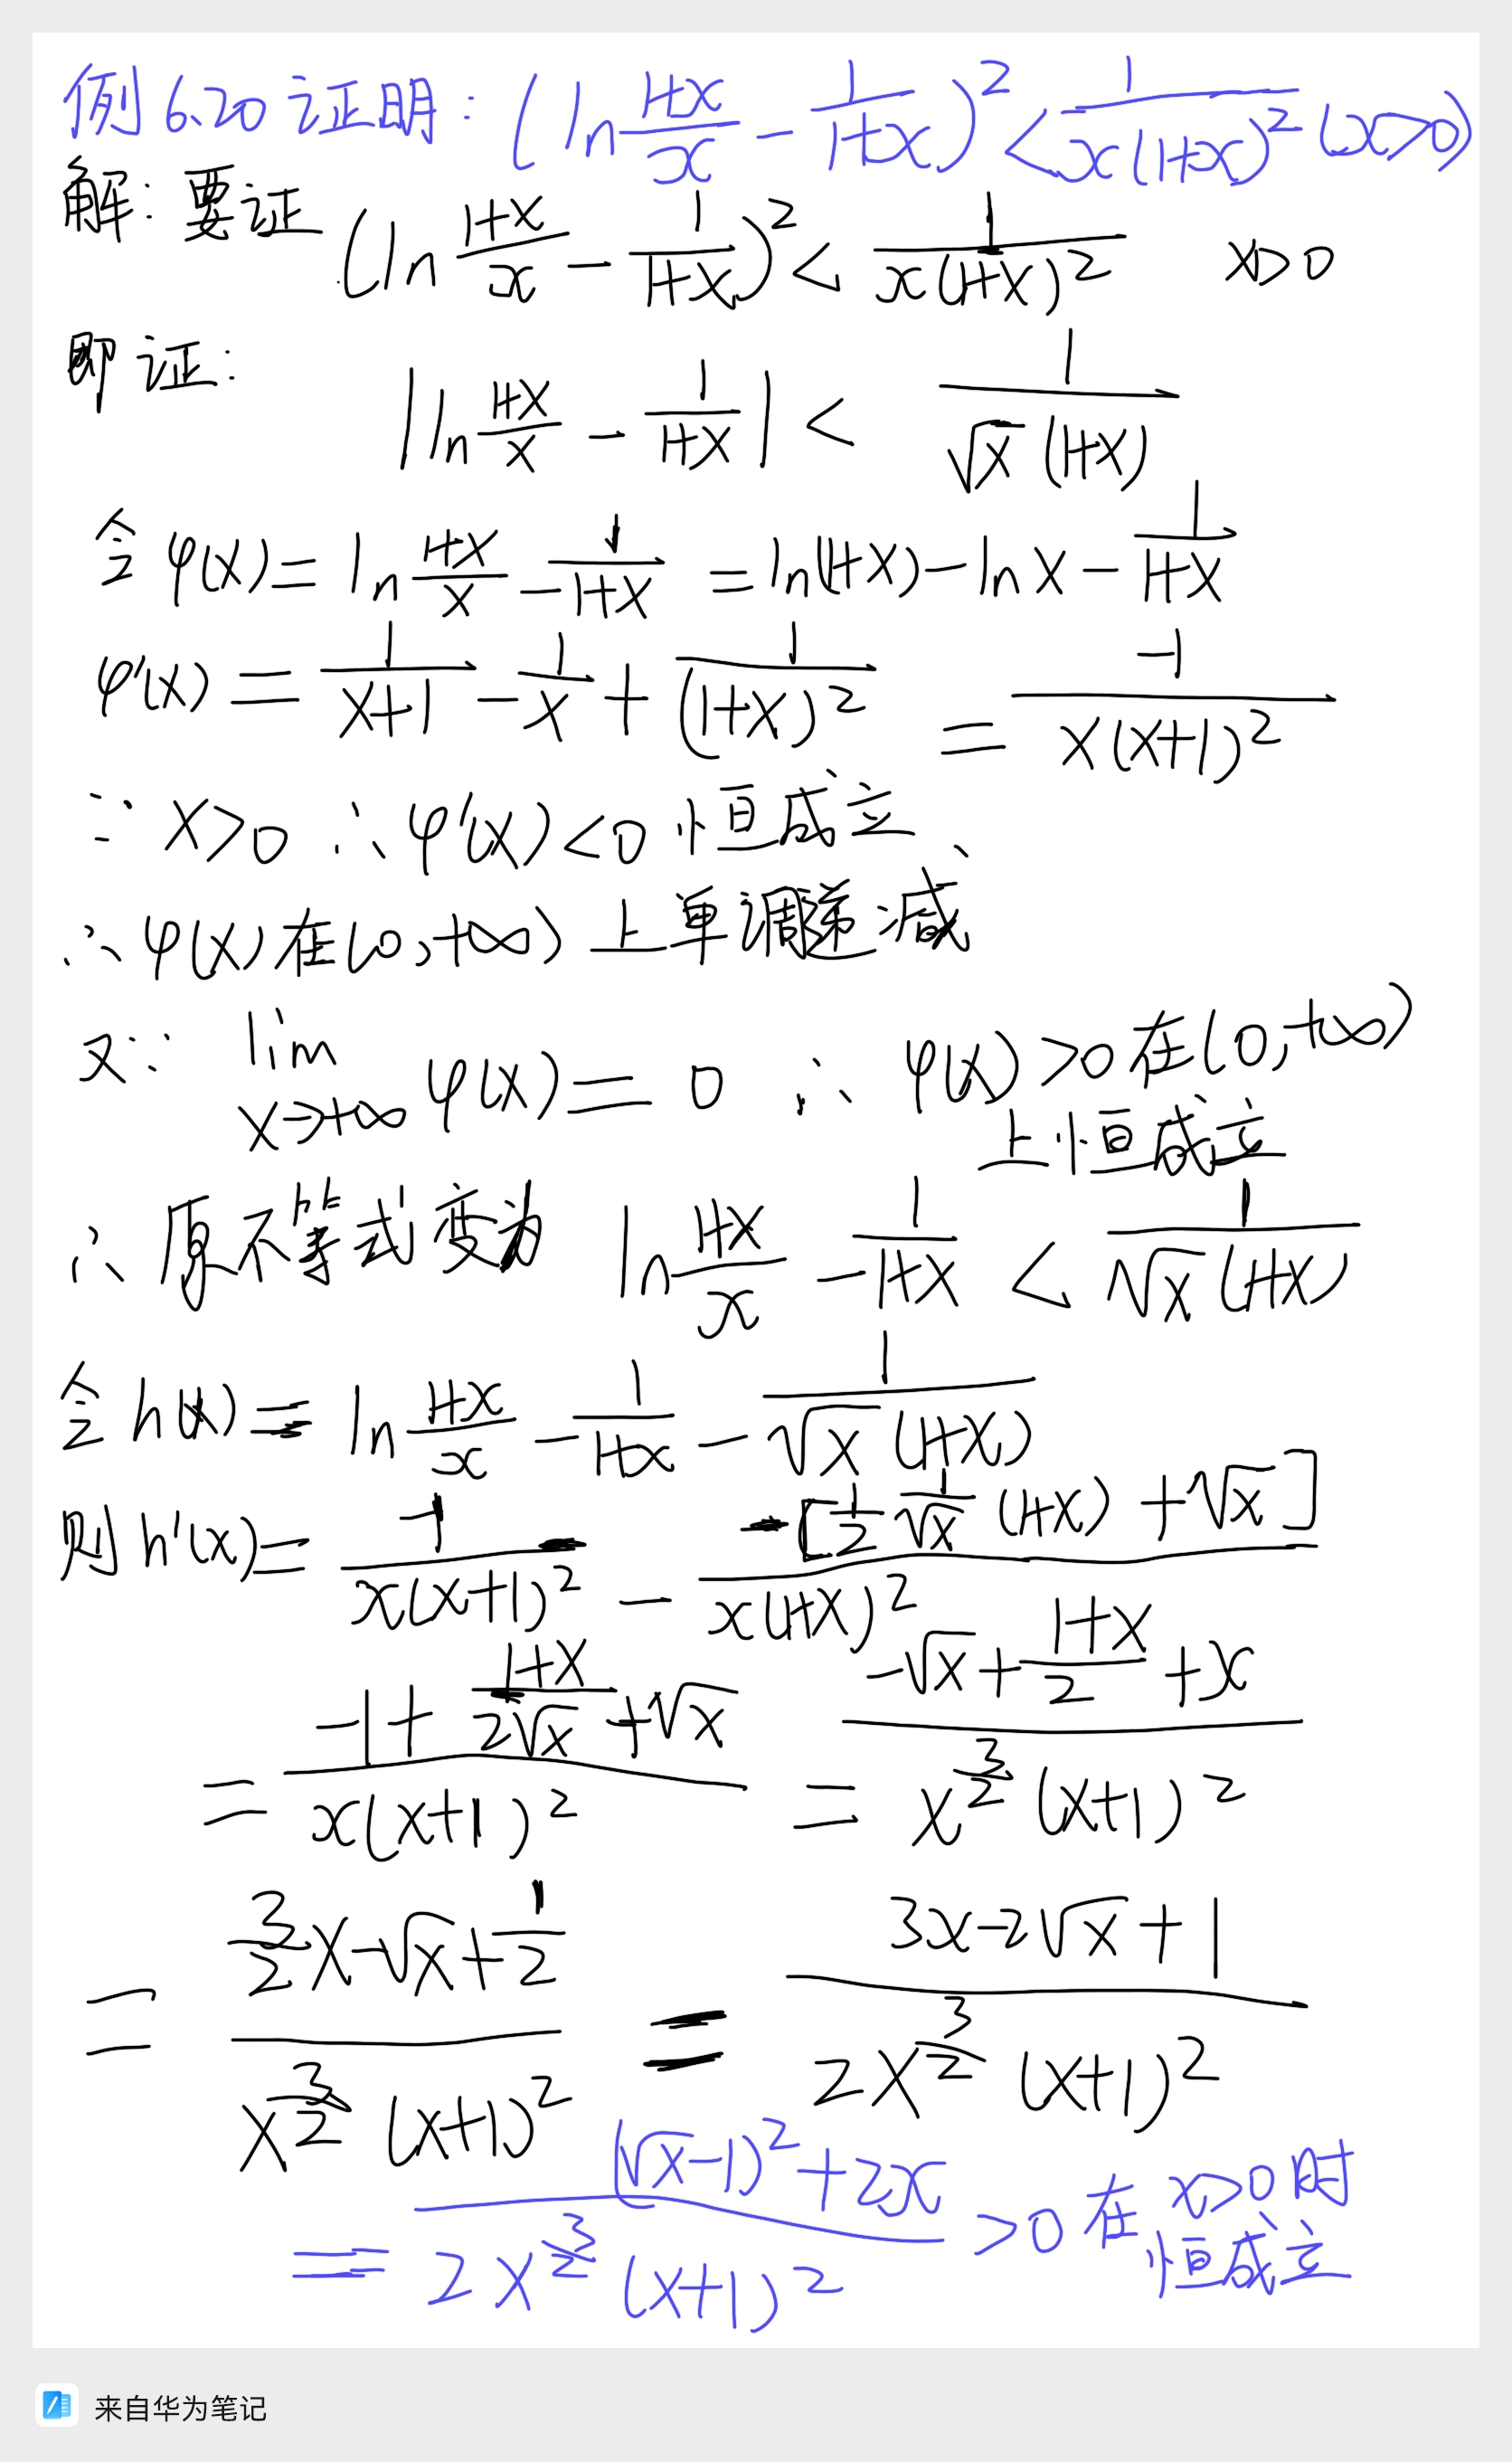 例6.20 证明：(ln (1+x)/x - 1/(1+x))² < 1/(x(1+x)²) (x>0)
解：要证 (ln (1+x)/x - 1/(1+x))² < 1/(x(1+x)²) x>0
即证：
|ln (1+x)/x - 1/(1+x)| < 1/(√x(1+x))
令φ(x) = ln (1+x)/x - 1/(1+x) = ln(1+x) - lnx - 1/(1+x)
φ'(x) = 1/(x+1) - 1/x + 1/(1+x)² = -1/(x(x+1)²)
∵ x>0 ∴ φ'(x)<0 恒成立
∴ φ(x)在(0,+∞)上单调递减
又∵ lim x→+∞ φ(x) = 0 ∴ φ(x)>0在(0,+∞)
上恒成立
∴ 原不等式变为 ln (1+x)/x - 1/(1+x) < 1/(√x(1+x))
令h(x) = ln (1+x)/x - 1/(1+x) - 1/(√x(1+x))
则h'(x) = -1/(x(x+1)²) - -[1/2 1/√x (1+x) + √x]/(x(1+x)²)
= (-1 + (1+x)/(2√x) + √x)/(x(x+1)²) = (-√x + (1+x)/2 + x)/(x^(3/2)(x+1)²)
= (3/2 x - √x + 1/2)/(x^(3/2)(x+1)²) = (3x - 2√x + 1)/(2x^(3/2)(x+1)²)
= ((√x-1)² + 2x)/(2x^(3/2)(x+1)²) > 0 在 x>0时
恒成立
来自华为笔记